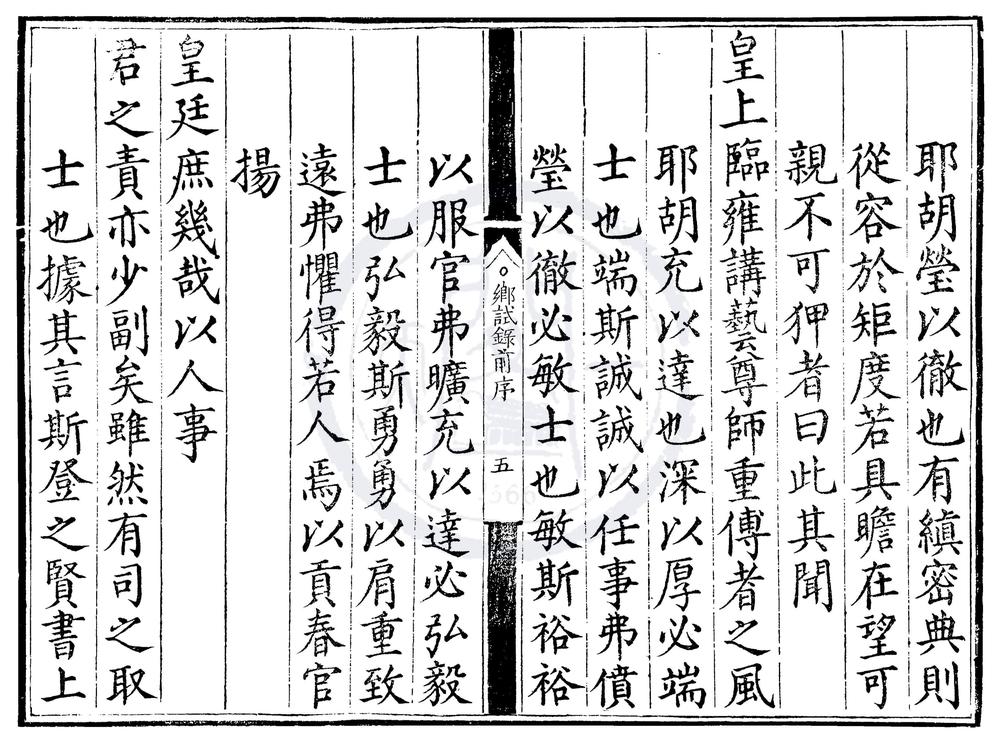 耶胡瑩以徹也有縝密典則
從容於矩度若具瞻在望可
親不可狎者曰此其聞
皇上臨雍講藝尊師重傅者之風
耶胡充以達也深以厚必端
士也端斯誠誠以任事弗僨
瑩以徹必敏士也敏斯裕裕
鄉試錄前序 五
以服官弗曠充以達必弘毅
士也弘毅斯勇勇以肩重致
遠弗懼得若人焉以貢春官
揚
皇廷庶幾哉以人事
君之責亦少副矣雖然有司之取
士也據其言斯登之賢書上